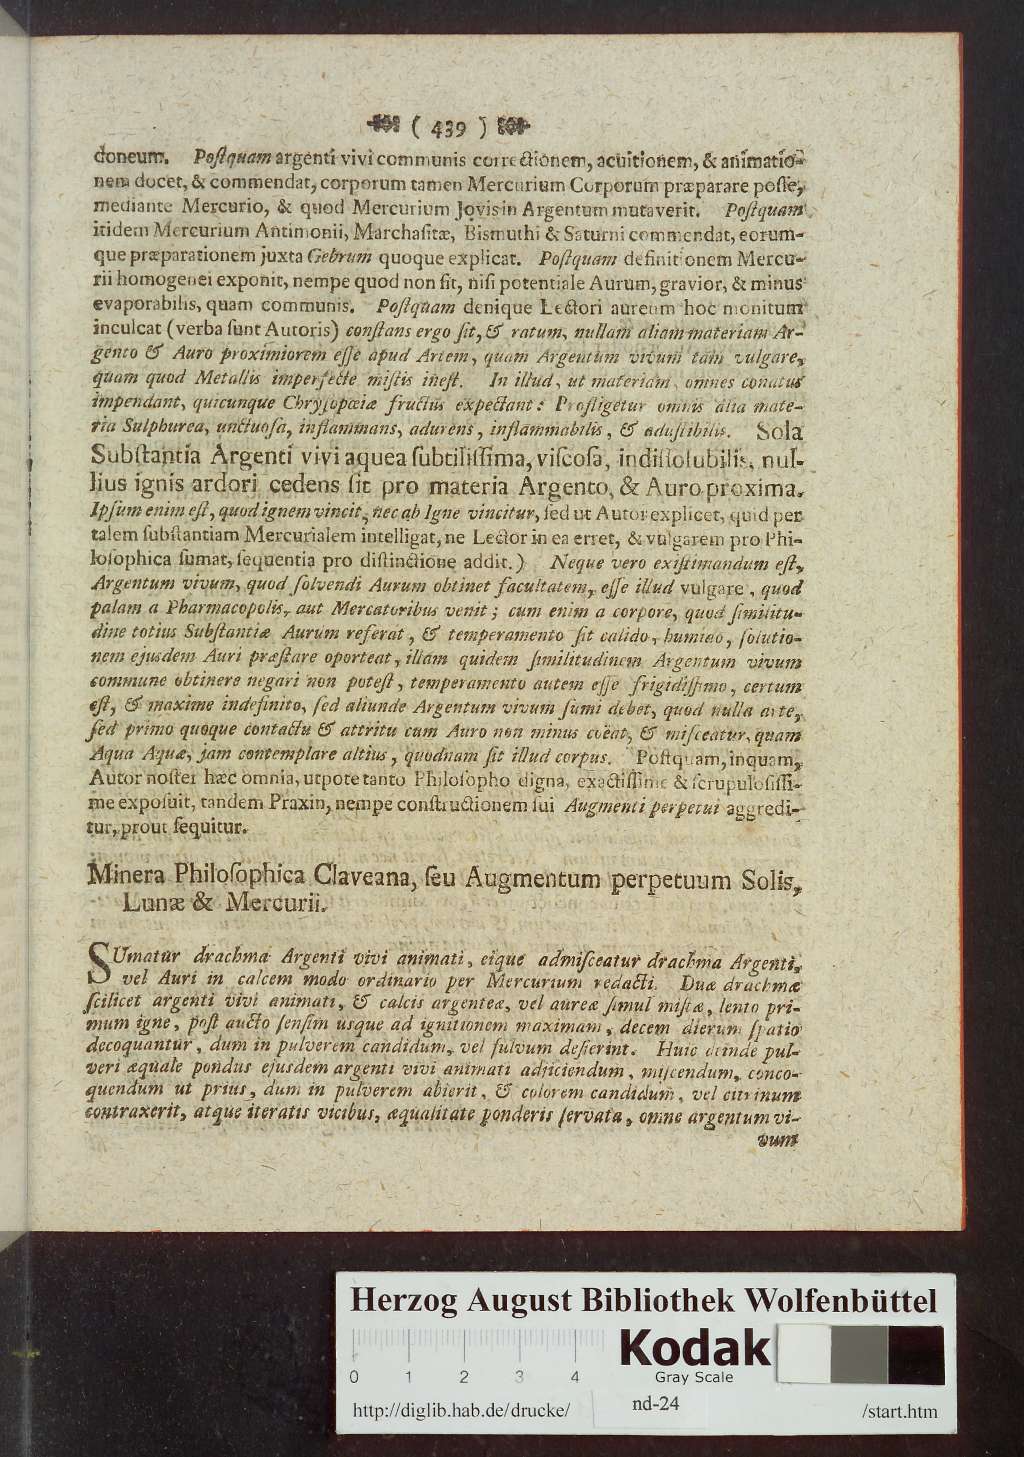 ( 439 )
doneum. Poſtquam argenti vivi communis correctionem, acuitionem, & animatio-
nem docet, & commendat, corporum tamen Mercurium Corporum præparare poſſe,
mediante Mercurio, & quod Mercurium Jovis in Argentum mutaverit. Poſtquam
itidem Mercurium Antimonii, Marchaſitæ, Bismuthi & Saturni commendat, eorum-
que præparationem juxta Gebrum quoque explicat. Poſtquam definitionem Mercu-
rii homogenei exponit, nempe quod non ſit, niſi potentiale Aurum, gravior, & minus
evaporabilis, quam communis. Poſtquam denique Lectori aureum hoc monitum
inculcat (verba ſunt Autoris) conſtans ergo ſit, & ratum, nullam aliam materiam Ar-
gento & Auro proximiorem eſſe apud Artem, quam Argentum vivum tam vulgare,
quam quod Metallis imperfecte miſtis ineſt. In illud, ut materiam, omnes conatus
impendant, quicunque Chryſopœiæ fructus expectant: Profligetur omnis alia mate-
ria Sulphurea, unctuoſa, inflammans, adurens, inflammabilis, & aduſtibilis. Sola
Subſtantia Argenti vivi aquea ſubtiliſſima, viſcoſa, indiſſolubilis, nul-
lius ignis ardori cedens ſit pro materia Argento, & Auro proxima.
Ipſum enim eſt, quod ignem vincit, nec ab Igne vincitur, ſed ut Autor explicet, quid per
talem ſubſtantiam Mercurialem intelligat, ne Lector in ea erret, & vulgarem pro Phi-
loſophica ſumat, ſequentia pro diſtinctione addit.) Neque vero exiſtimandum eſt,
Argentum vivum, quod ſolvendi Aurum obtinet facultatem, eſſe illud vulgare, quod
palam a Pharmacopolis, aut Mercatoribus venit; cum enim a corpore, quod ſimilitu-
dine totius Subſtantiæ Aurum referat, & temperamento ſit calido, humido, ſolutio-
nem ejusdem Auri præſtare oporteat, illam quidem ſimilitudinem Argentum vivum
commune obtinere negari non poteſt, temperamento autem eſſe frigidiſſimo, certum
eſt, & maxime indefinito, ſed aliunde Argentum vivum ſumi debet, quod nulla arte,
ſed primo quoque contactu & attritu cum Auro non minus coëat, & miſceatur, quam
Aqua Aquæ, jam contemplare altius, quodnam ſit illud corpus. Poſtquam, inquam,
Autor noſter hæc omnia, utpote tanto Philoſopho digna, exactiſſime & ſcrupuloſiſſi-
me expoſuit, tandem Praxin, nempe conſtructionem ſui Augmenti perpetui aggredi-
tur, prout ſequitur.
Minera Philoſophica Claveana, ſeu Augmentum perpetuum Solis,
Lunæ & Mercurii.
SUmatur drachma Argenti vivi animati, eique admiſceatur drachma Argenti,
vel Auri in calcem modo ordinario per Mercurium redacti. Duæ drachmæ
ſcilicet argenti vivi animati, & calcis argenteæ, vel aureæ ſimul miſtæ, lento pri-
mum igne, poſt aucto ſenſim usque ad ignitionem maximam, decem dierum ſpatio
decoquantur, dum in pulverem candidum, vel fulvum deſierint. Huic deinde pul-
veri æquale pondus ejusdem argenti vivi animati adjiciendum, miſcendum, conco-
quendum ut prius, dum in pulverem abierit, & colorem candidum, vel citrinum
contraxerit, atque iteratis vicibus, æqualitate ponderis ſervata, omne argentum vi-
vum
Herzog August Bibliothek Wolfenbüttel
Kodak
Gray Scale
0 1 2 3 4
http://diglib.hab.de/drucke/ nd-24 /start.htm